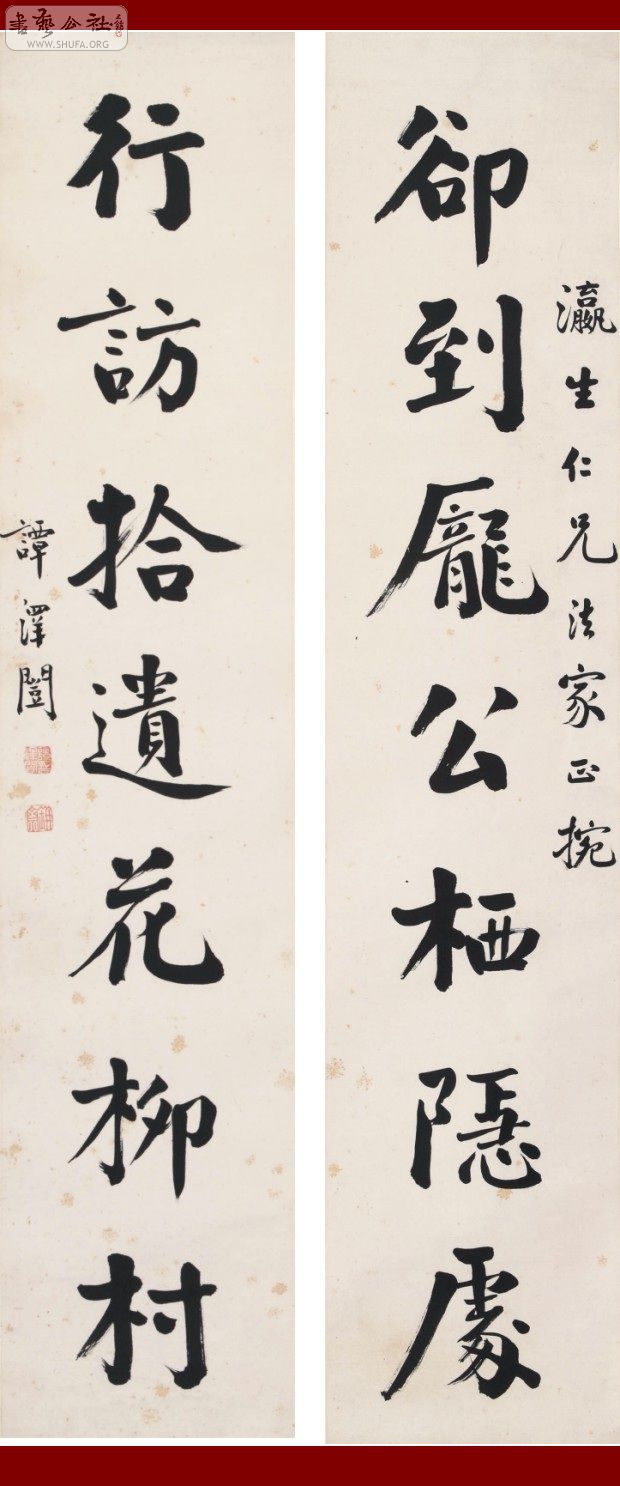 書藝公社
WWW.SHUFA.ORG
瀛生仁兄法家正捥
卻到龐公栖隱處
行訪拾遺花柳村
譚澤闓